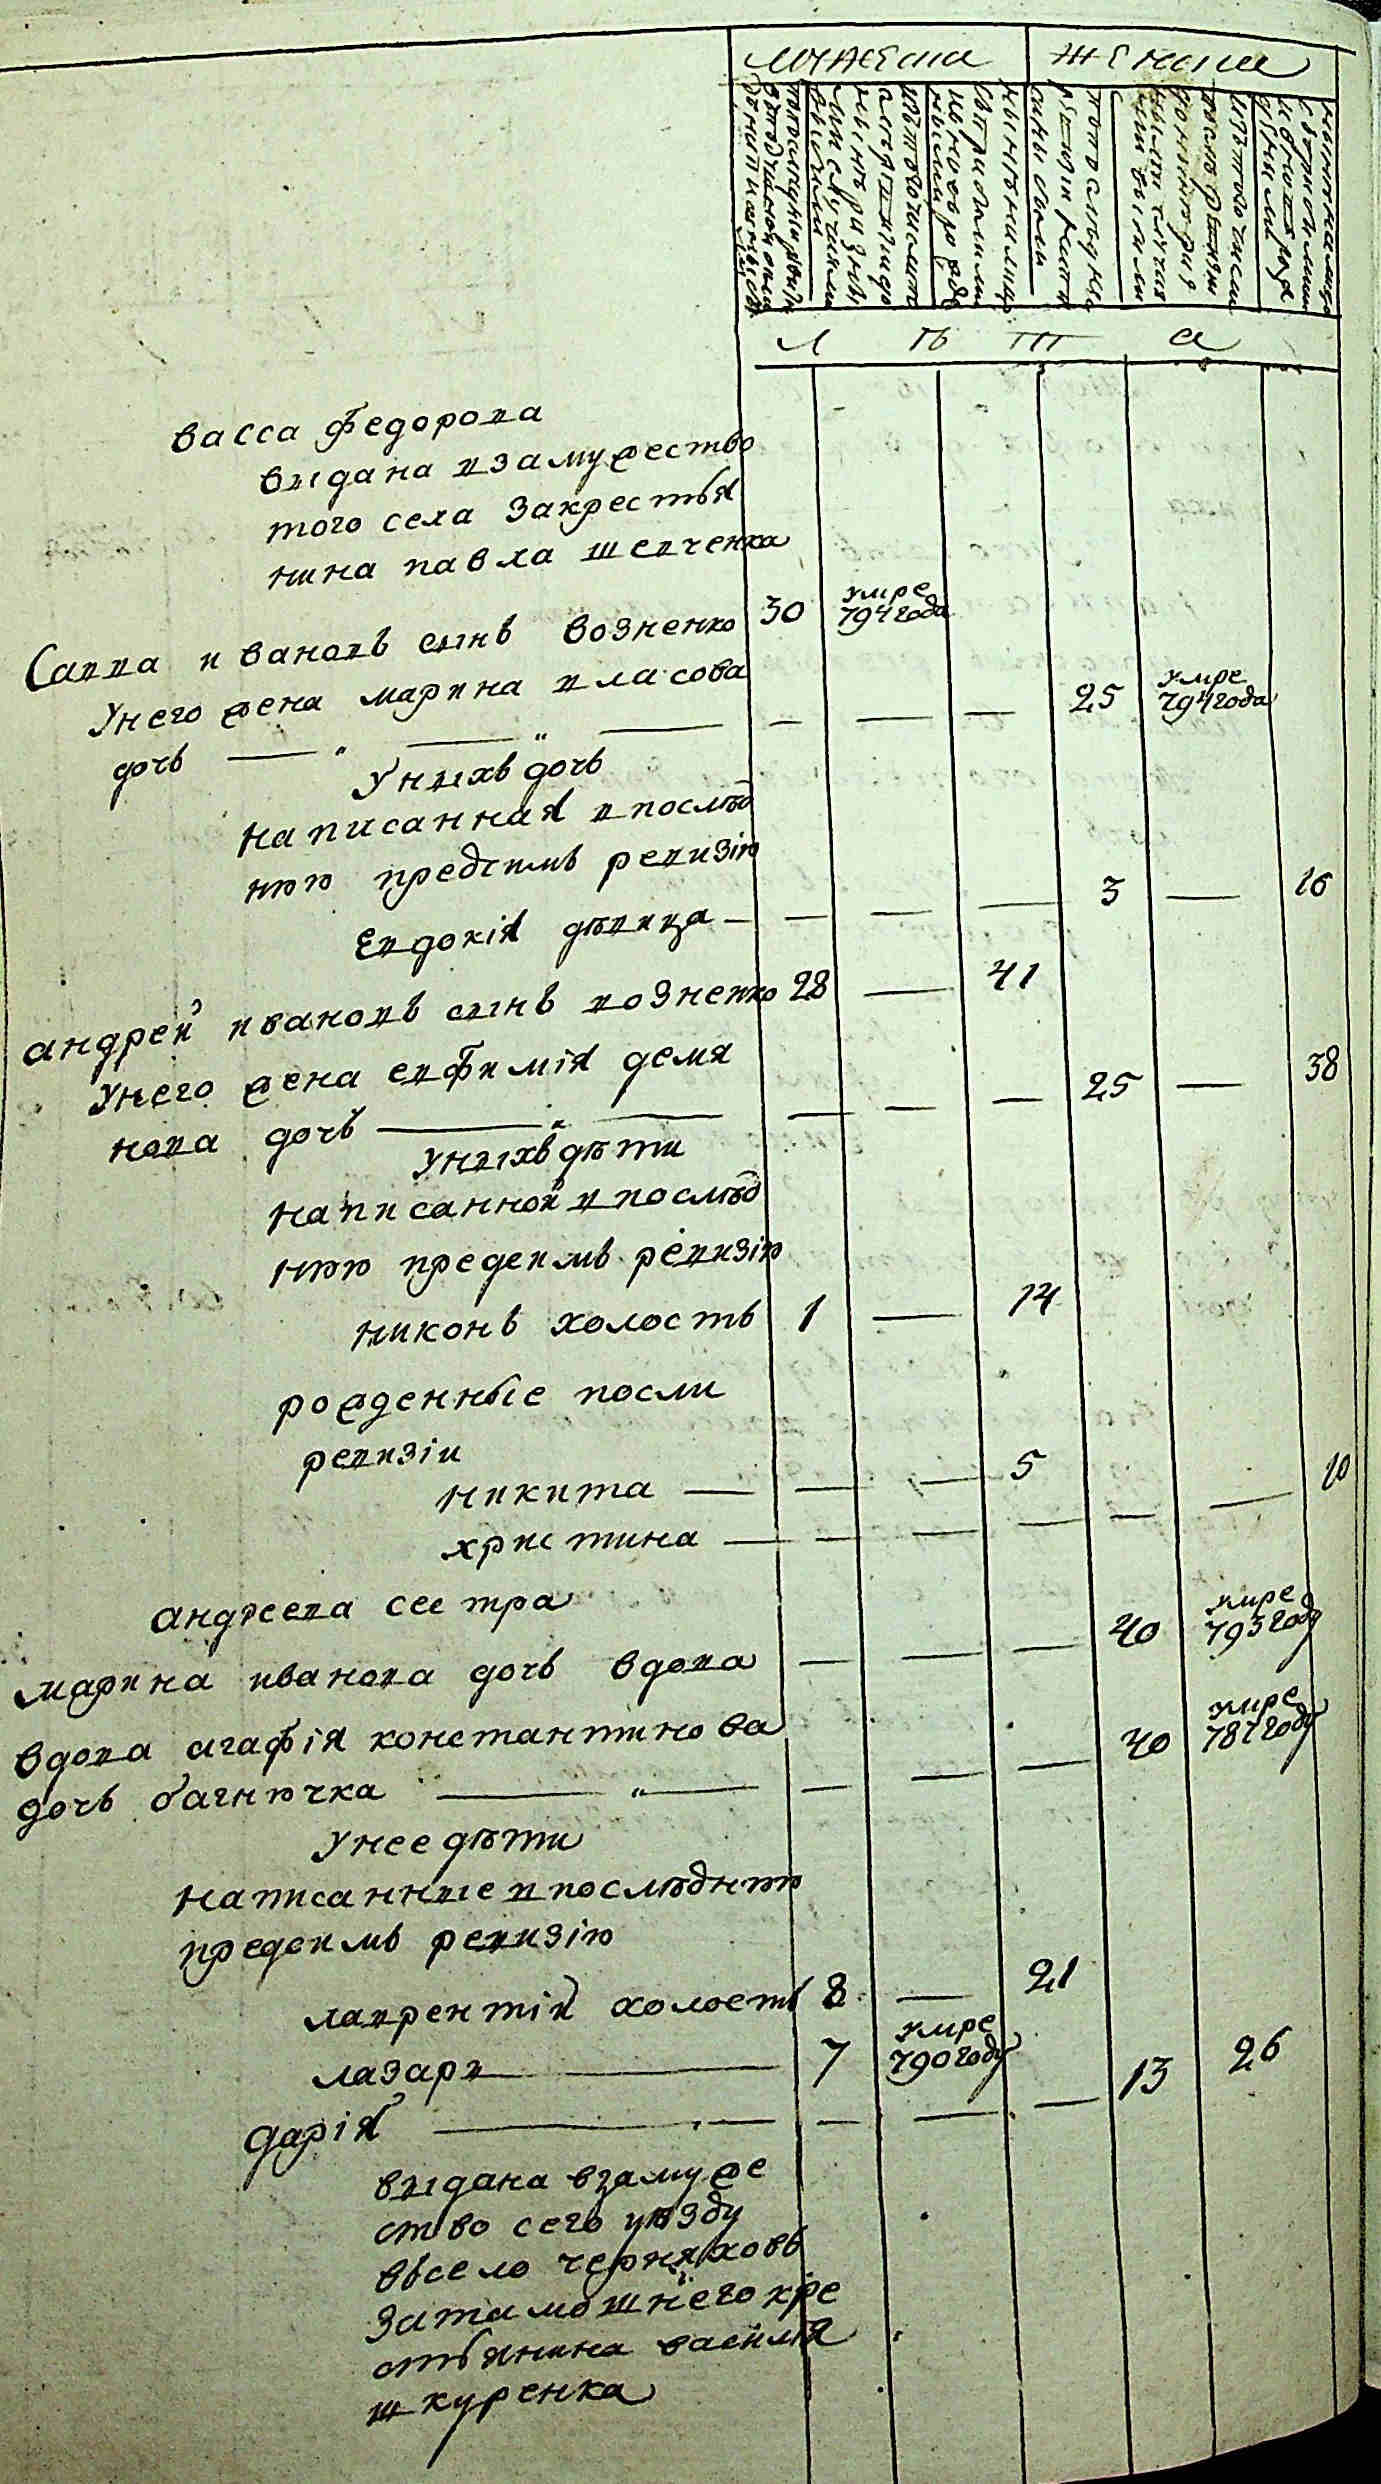 мужеска женска
л ѣ т а
васса федорова
выдана взамужество
того села Закрестья
нина павла шевченка
Савва ивановъ сынъ возненко 30 умре 794 года
Унего жена марина власова
дочь 25 умре 794 года
Унихъ дочь
написанная впослѣд
нюю предсимъ ревизію
Евдокія дѣвица 3 16
андрей ивановъ сынъ возненко 28 41
Унего жена евфимія демя
нова дочь 25 38
Унихъ дѣти
написанной впослѣд
нюю предсимъ ревизію
никонъ холостъ 1 14
рожденные посли
ревизіи
никита 5
христина 10
андреева сестра
марина иванова дочь вдова 40 умре 793 году
вдова агафія константинова
дочь багнючка 40 умре 787 году
Унее дѣти
написанные впослѣднюю
предсимъ ревизію
лаврентій холостъ 8 21
лазарь 7 умре 790 году
дарія 13 26
выдана взамуже
ство сего уезду
всело черняховъ
Затамошнего кре
стьянина василія
шкуренка